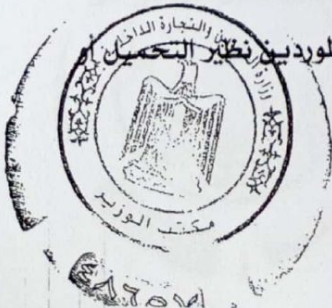 لموردين نظير التحميل أو
وزارة التموين والتجارة الداخلية
مكتب الوزير